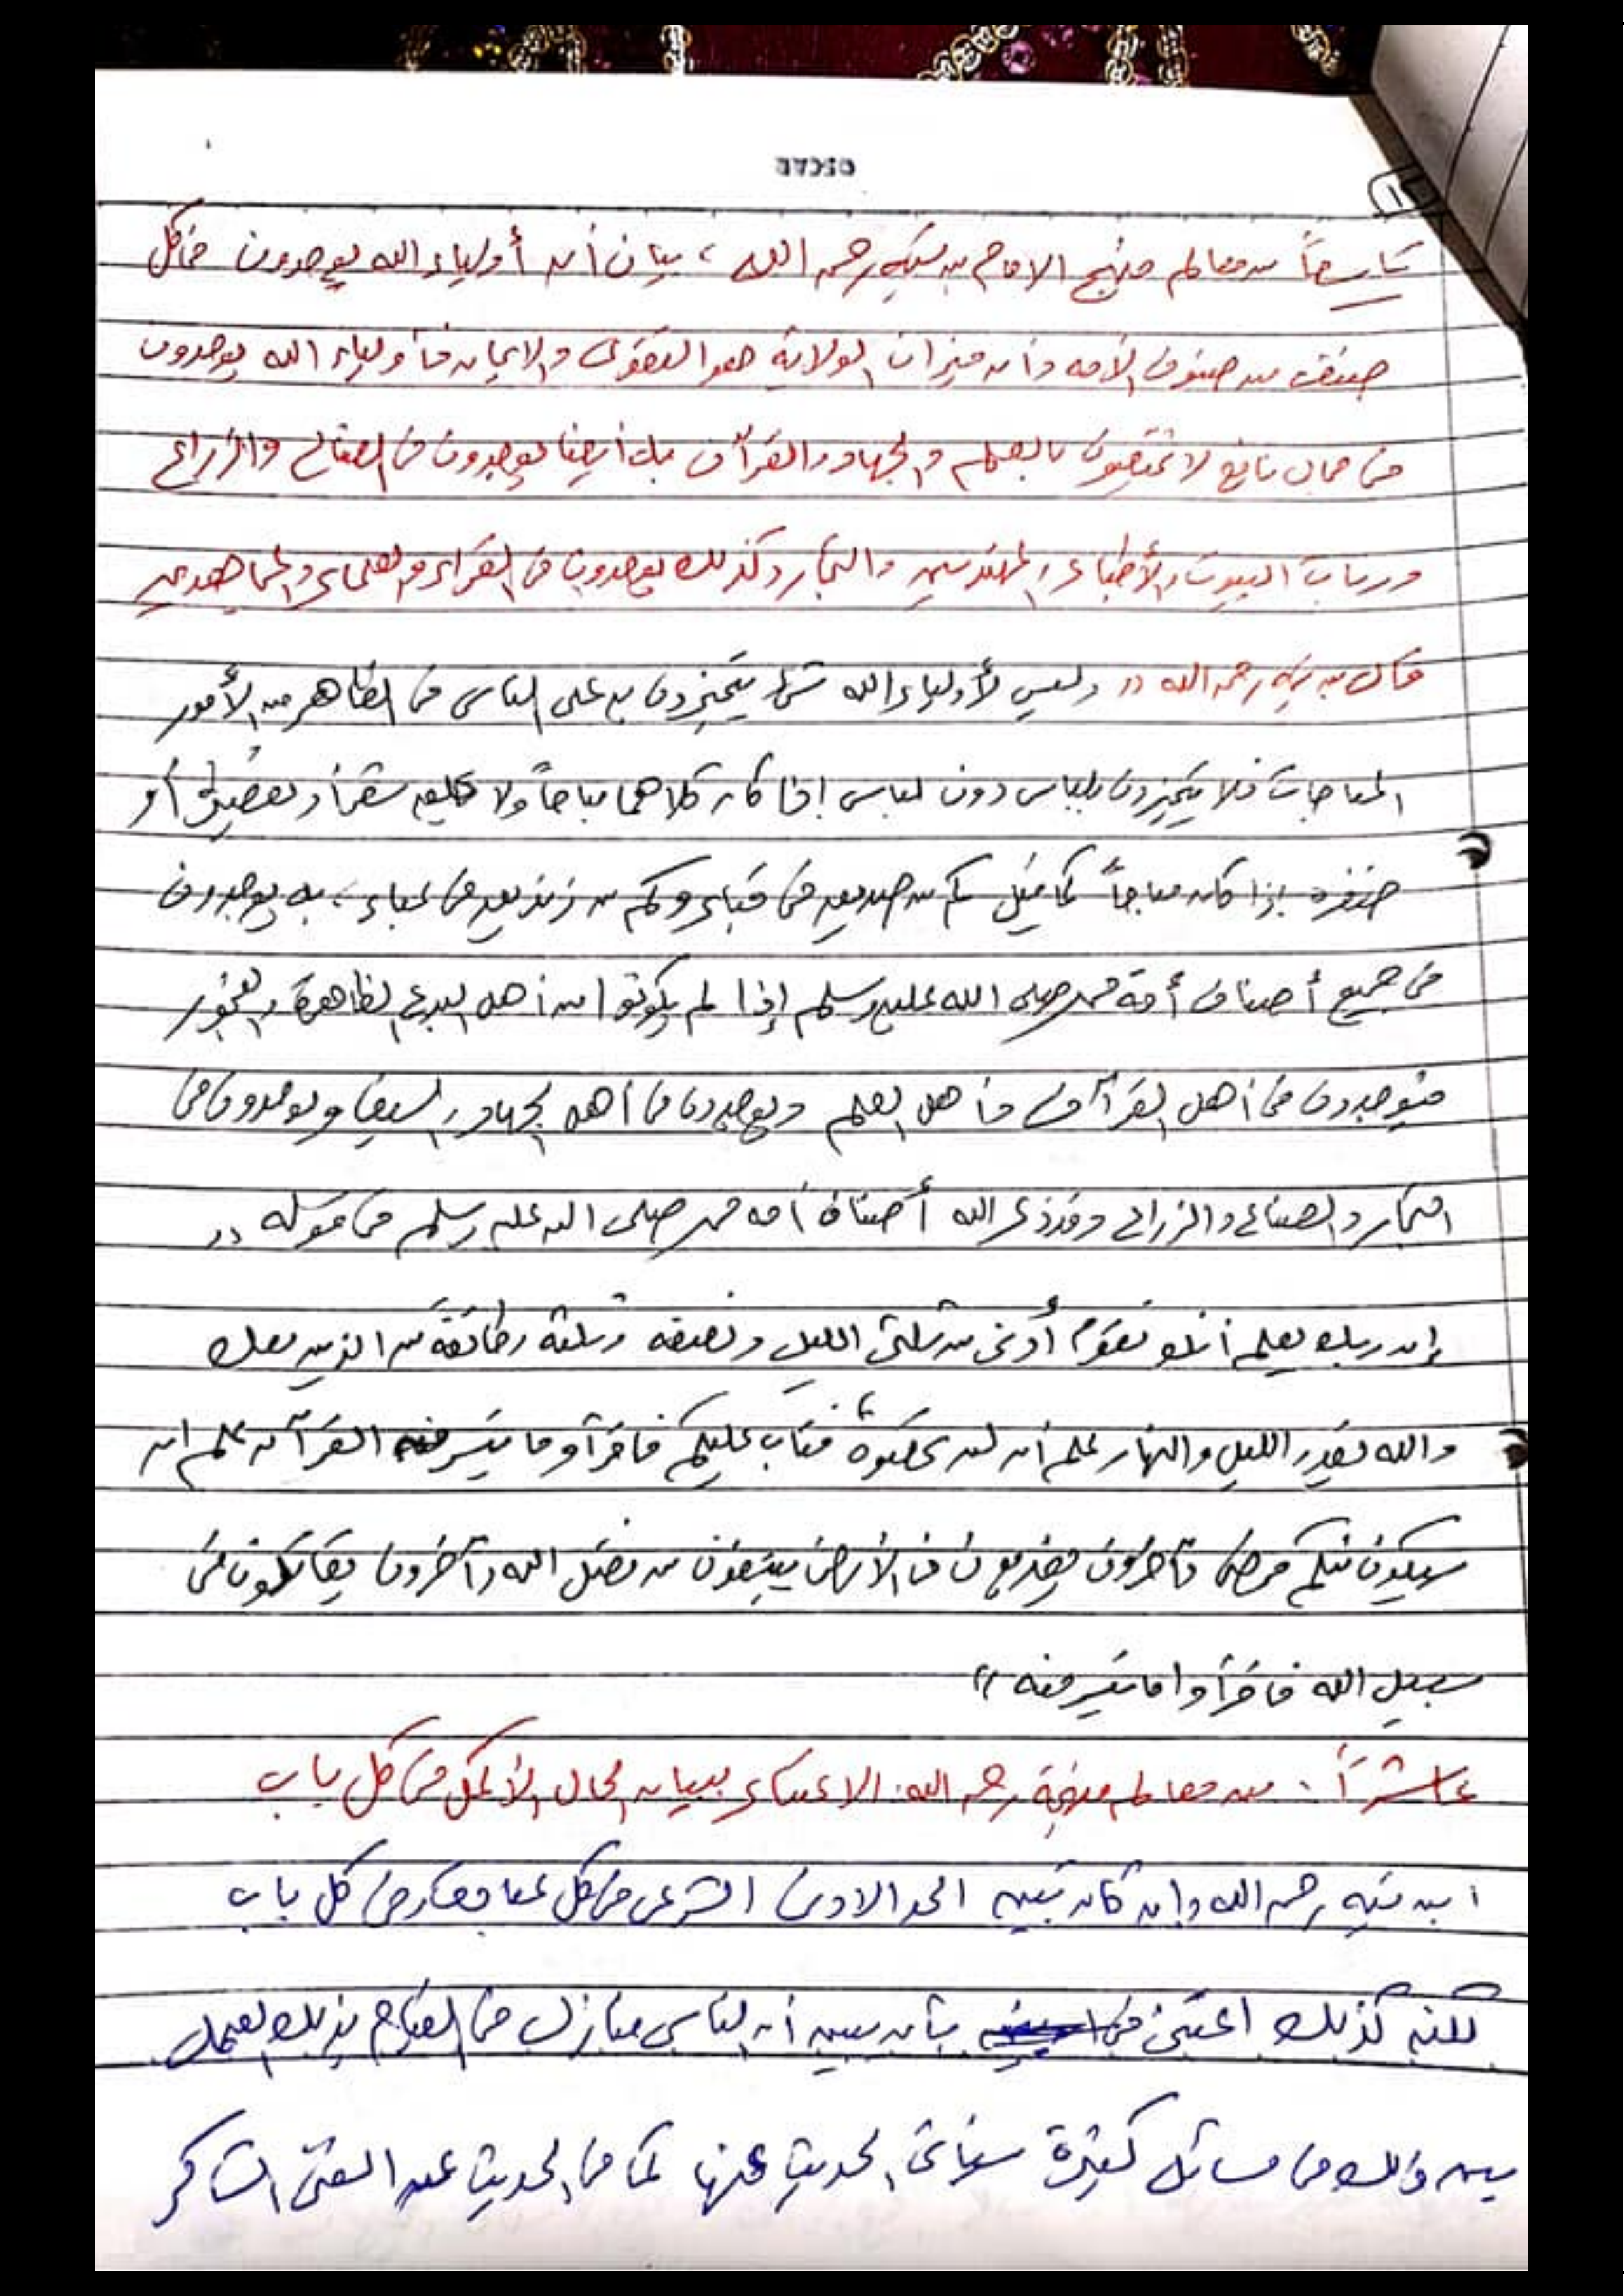 ١
تاسعاً من معالم منهج الامام بن تيمية رحمه الله ، بيان أن أولياء الله يوجدون في كل
صنف من صنوف الأمه وأن ميزان الولاية هو التقوى والايمان فأولياء الله يوجدون
في مجال نافع لا يختصون بالعلم والجهاد والقرآن بل أيضا يوجدون في الصناع والزراع
وربات البيوت والأطباء والمهندسين والتجار وكذلك يوجدون في القراء والعلماء والمجاهدين
قال بن تيميه رحمه الله (( وليس لأولياء الله شئ يتميزون به على الناس في الظاهر من الأمور
المباحات فلا يتميزون بلباس دون لباس إذا كان كلاهما مباحاً ولا بحلق شعر أو تقصيره أو
ضفره إذا كان مباحاً كما قيل كم من صديق في قباء وكم من زنديق في عباء ، بل يوجدون
في جميع أصناف أمة محمد صلى الله عليه وسلم إذا لم يكونوا من أهل البدع الظاهرة والفجور
فيوجدون في أهل القرآن وأهل العلم ويوجدون في أهل الجهاد والسيف ويوجدون في
التجار والصناع والزراع وقد ذكر الله أصناف أمه محمد صلى الله عليه وسلم في قوله ((
إن ربك يعلم أنك تقوم أدنى من ثلثى الليل ونصفه وثلثه وطائفة من الذين معك
والله يقدر الليل والنهار علم أن لن تحصوه فتاب عليكم فاقرأوا ما تيسر من القرآن علم ان
سيكون منكم مرضى وآخرون يضربون في الأرض يبتغون من فضل الله وآخرون يقاتلون في
سبيل الله فاقرأوا ما تيسر منه ))
عاشراً : من معالم منهجة رحمه الله: الاعتناء ببيان الحال الأكمل في كل باب
ابن تيميه رحمه الله وإن كان يبين الحد الادنى الشرعى في كل في كل باب
لكنه كذلك اعتنى بأن يبين أن الناس منازل في القيام بذلك العمل
بين ذلك في مسائل كثيرة سيأتى الحديث عنها كما في الحديث عن الغنى الشاكر